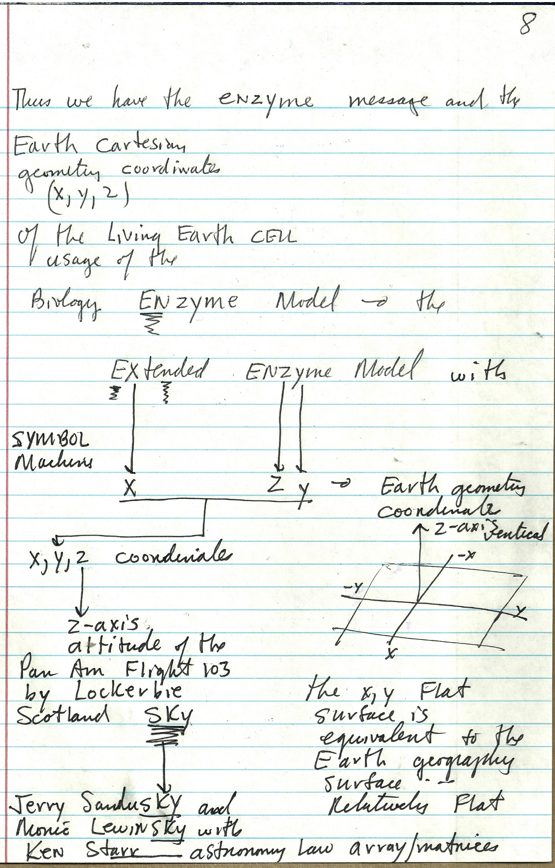 8
Thus we have the enzyme message and the
Earth Cartesian
geometry coordinates
(X, Y, Z)
of the Living Earth CELL
usage of the
Biology ENzyme Model → the
EXtended ENZyme Model with
SYMBOL
Machine
X Z y → Earth geometry
coordinate
Z-axis
vertical
X, Y, Z coordinates
-X
-Y
Y
X
Z-axis
attitude of the
Pan Am Flight 103
by Lockerbie
Scotland SKy
the x, y Flat
surface is
equivalent to the
Earth geography
surface --
Relatively Flat
Jerry SanduSKY and
Monic LewinSky with
Ken Starr — astronomy law array/matrices